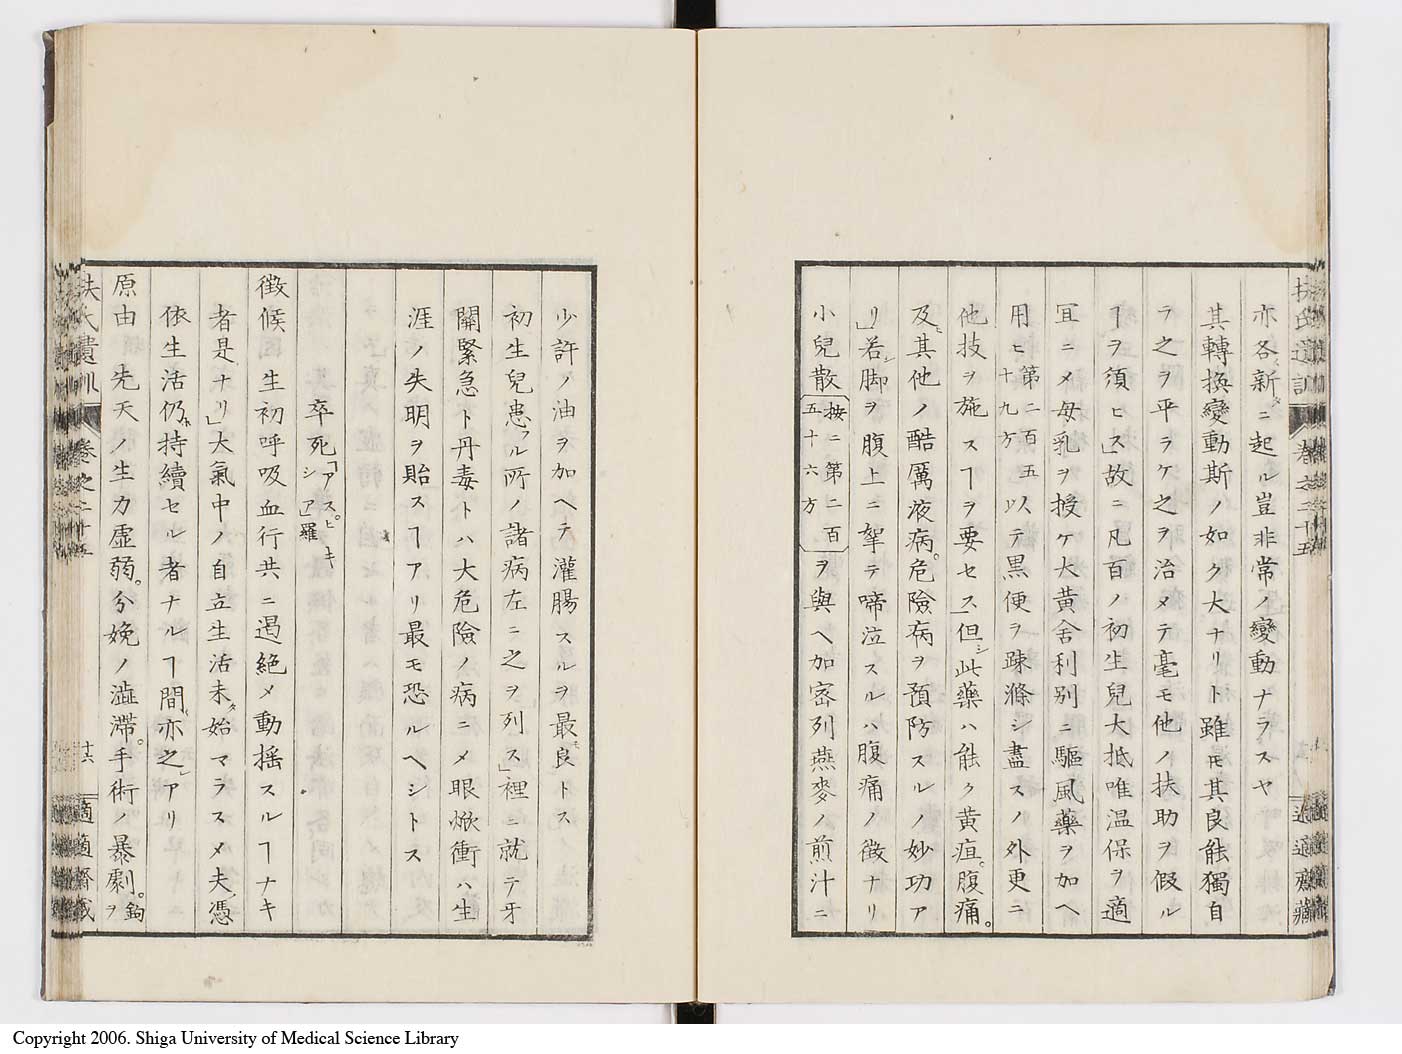 扶氏遺訓 卷之二十五 適適齋藏
亦各新タニ起ル豈非常ノ變動ナラスヤ
其轉換變動斯ノ如ク大ナリト雖モ其良能獨自
ラ之ヲ平ラケ之ヲ治メテ毫モ他ノ扶助ヲ假ル
ヿヲ須ヒス」故ニ凡百ノ初生兒大抵唯温保ヲ適
宜ニメ母乳ヲ授ケ大黃舍利別ニ驅風藥ヲ加ヘ
用ヒ第二百五十九方以テ黒便ヲ疎滌シ盡スノ外更ニ
他技ヲ施スヿヲ要セス」但シ此藥ハ能ク黄疸。腹痛。
及ヒ其他ノ酷厲液病。危險病ヲ預防スルノ妙功ア
リ」若シ脚ヲ腹上ニ牽テ啼泣スルハ腹痛ノ徴ナリ
小兒散按ニ第二百五十六方ヲ與ヘ加密列燕麥ノ煎汁ニ
少許ノ油ヲ加ヘテ灌腸スルヲ最モ良トス
初生兒患フル所ノ諸病左ニ之ヲ列ス」裡ニ就テ牙
關緊急ト丹毒トハ大危險ノ病ニメ眼焮衝ハ生
涯ノ失明ヲ貽スヿアリ最モ恐ルヘシトス
卒死「アスピキシア」羅
徴候 生初呼吸血行共ニ遏絶メ動搖スルヿナキ
者是ナリ」大氣中ノ自立生活未タ始マラスメ夫ノ憑
依生活仍ホ持續セル者ナルヿ間亦之レアリ
原由 先天ノ生力虚弱。分娩ノ澁滯。手術ノ暴劇。鉤ヲ
扶氏遺訓 卷之二十五 十六 適適齋藏
Copyright 2006. Shiga University of Medical Science Library